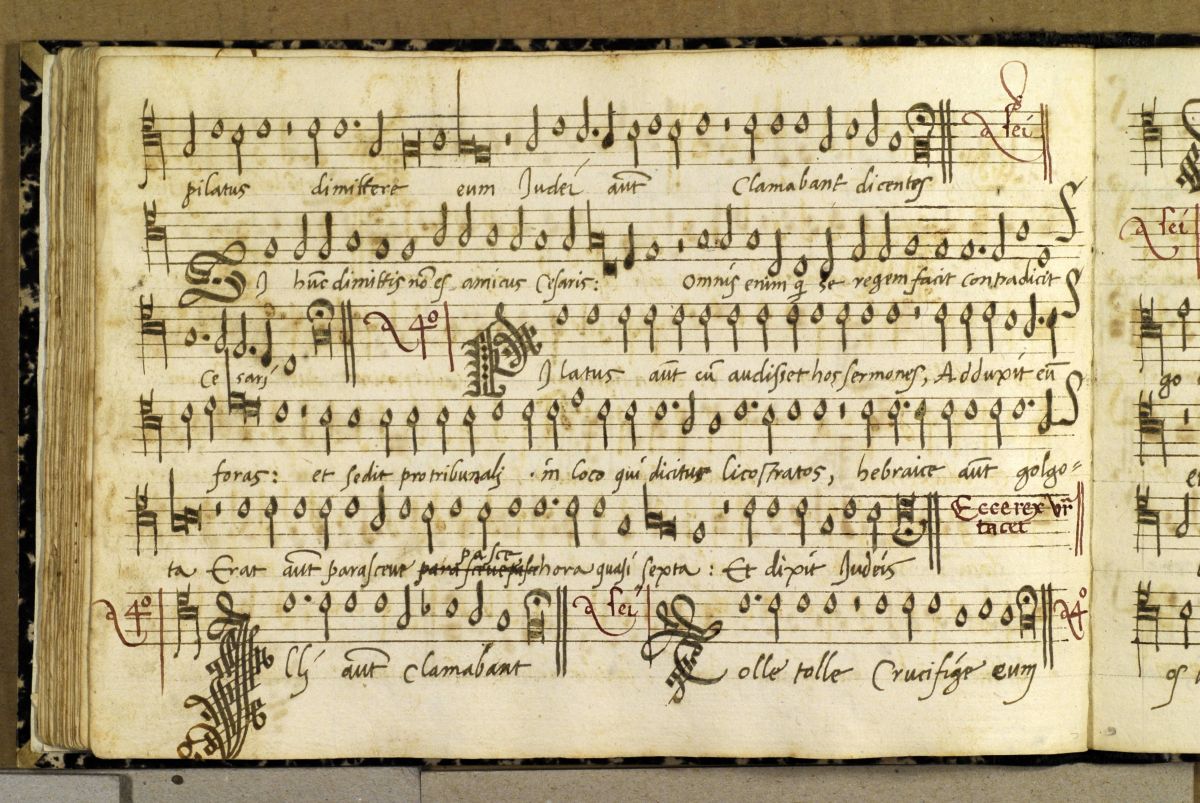 a sei
pilatus dimittere eum Iudei aūt Clamabant dicentes
SI hūc dimittis nō es amicus Cesaris: Omnis enim q̄ se regem facit contradicit
Cesari a 4º PIlatus aūt cū audisset hos sermones, Adduxit eū
foras: et sedit pro tribunali in loco qui dicitur licostratos, hebraice aūt golgo=
Ecce rex vr̄ tacet
ta Erat aūt parasceue pasce hora quasi sexta: Et dixit Iudeis
a 4º a sei a 4º
Illi aūt Clamabant Tolle tolle Crucifige eum
a sei
go
et
os